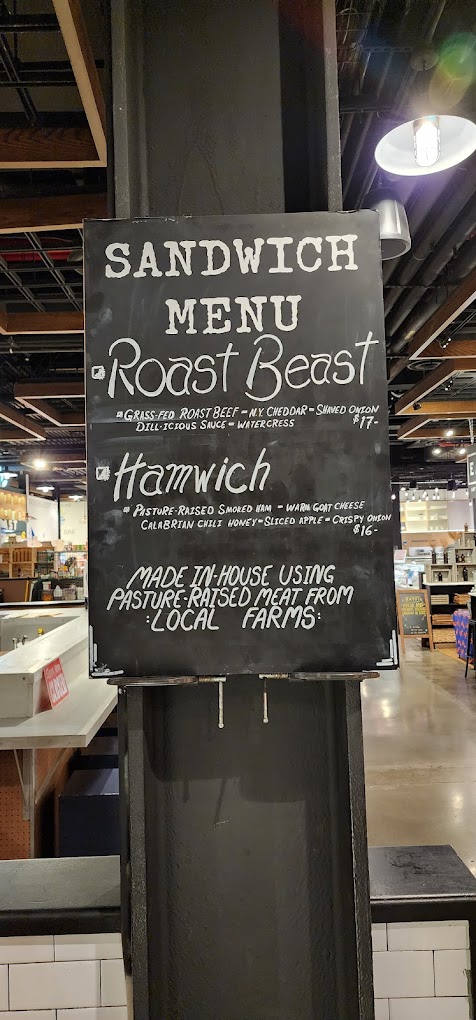 SANDWICH
MENU
Roast Beast
GRASS-FED ROAST BEEF - N.Y. CHEDDAR - SHAVED ONION
DILL-ICIOUS SAUCE - WATERCRESS $17-
Hamwich
PASTURE-RAISED SMOKED HAM - WARM GOAT CHEESE
CALABRIAN CHILI HONEY - SLICED APPLE - CRISPY ONION
$16-
MADE IN-HOUSE USING
PASTURE-RAISED MEAT FROM
:LOCAL FARMS:
CLOSED